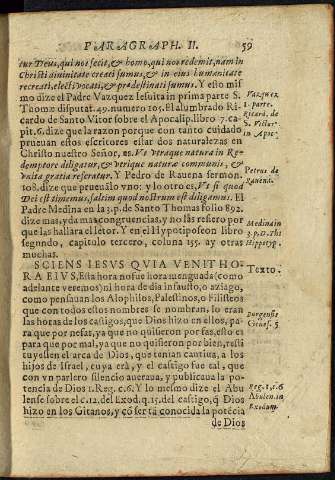 PARAGRAPH. II. 59
tur Deus, qui nos fecit, & homo, qui nos redemit, nam in
Christi diuinitate creati sumus, & in eius humanitate
recreati, electi, vocati, & prædestinati sumus. Y esto mis
mo dize el Padre Vazquez Iesuita in prima parte S.
Thomæ disputat. 49. numero 105. El alumbrado Ri
cardo de Santo Vitor sobre el Apocalip. libro 7. ca-
pit. 6. dize que la razon porque con tanto cuidado
prueuan estos escritores estar dos naturalezas en
Christo nuestro Señor, es. Vt vtraque natura in Re-
demptore diligatur, & vtrique naturæ communis, &
vnita gratia referatur. Y Pedro de Rauena sermon.
108. dize que prueualo vno: y lo otro es. Vt si quod
Dei est timemus, saltim quod nostrum est diligamus. El
Padre Medina en la 3. p. de Santo Thomas folio 892.
dize mas, y da mas congruencias, y no las refiero por
que las hallara el letor. Y en el Hypotiposeon libro
segundo, capitulo tercero, coluna 155. ay otras
muchas.
SCIENS IESVS QVIA VENIT HO-
RA EIVS, Esta hora no fue hora menguada (como
adelante veremos) ni hora de dia infausto, o aziago,
como pensauan los Alophilos, Palestinos, o Filisteos
que con todos estos nombres se nombran, lo eran
las horas de los castigos, que Dios hizo en ellos, pa-
ra que por nefas, ya que no quisieron por fas, esto es
para que por mal, ya que no quisieron por bien, resti
tuyessen el arca de Dios, que tenian cautiua, a los
hijos de Israel, cuya erà, y el castigo fue eal, que
con vn parlero silencio auereaua, y publicaua la po-
tencia de Dios 1. Reg. c. 6. Y lo mesmo dize el Abu
lense sobre el c. 12. del Exod. q. 15. del castigo, q̃ Dios
hizo en los Gitanos, y cõ ser tã conocida la potẽcia
de Dios
Vazquez
1. parte.
Ricard. de
S. Victor.
in Apoc.
Petrus de
Rauena.
Medina in
3. p. D. Tho
Hippotyp.
Texto.
Burgensis
1. Reg. c. 6
Abulen. in
Exodum.